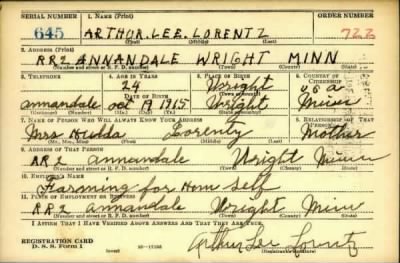 SERIAL NUMBER 1. NAME (Print) ORDER NUMBER
645 ARTHUR.LEE.LORENTZ 722
2. ADDRESS (Print)
RR2 ANNANDALE WRIGHT MINN
(Number and street or R. F. D. number) (Town) (County) (State)
3. TELEPHONE 4. AGE IN YEARS 5. PLACE OF BIRTH 6. COUNTRY OF CITIZENSHIP
24 Wright U S a
DATE OF BIRTH
annandale Oct 19 1915 Wright Minn
7. NAME OF PERSON WHO WILL ALWAYS KNOW YOUR ADDRESS 8. RELATIONSHIP OF THAT PERSON
Mrs Hulda Lorentz Mother
(Mr., Mrs., Miss) (First) (Middle) (Last)
9. ADDRESS OF THAT PERSON
RR2 annandale Wright Minn
(Number and street or R. F. D. number) (Town) (County) (State)
10. EMPLOYER'S NAME
Farming for Home Self
11. PLACE OF EMPLOYMENT OR BUSINESS
RR2 annandale Wright Minn
(Number and street or R. F. D. number) (Town) (County) (State)
I AFFIRM THAT I HAVE VERIFIED ABOVE ANSWERS AND THAT THEY ARE TRUE.
REGISTRATION CARD
D. S. S. Form 1
(over)
Arthur Lee Lorentz
(Registrant's signature)